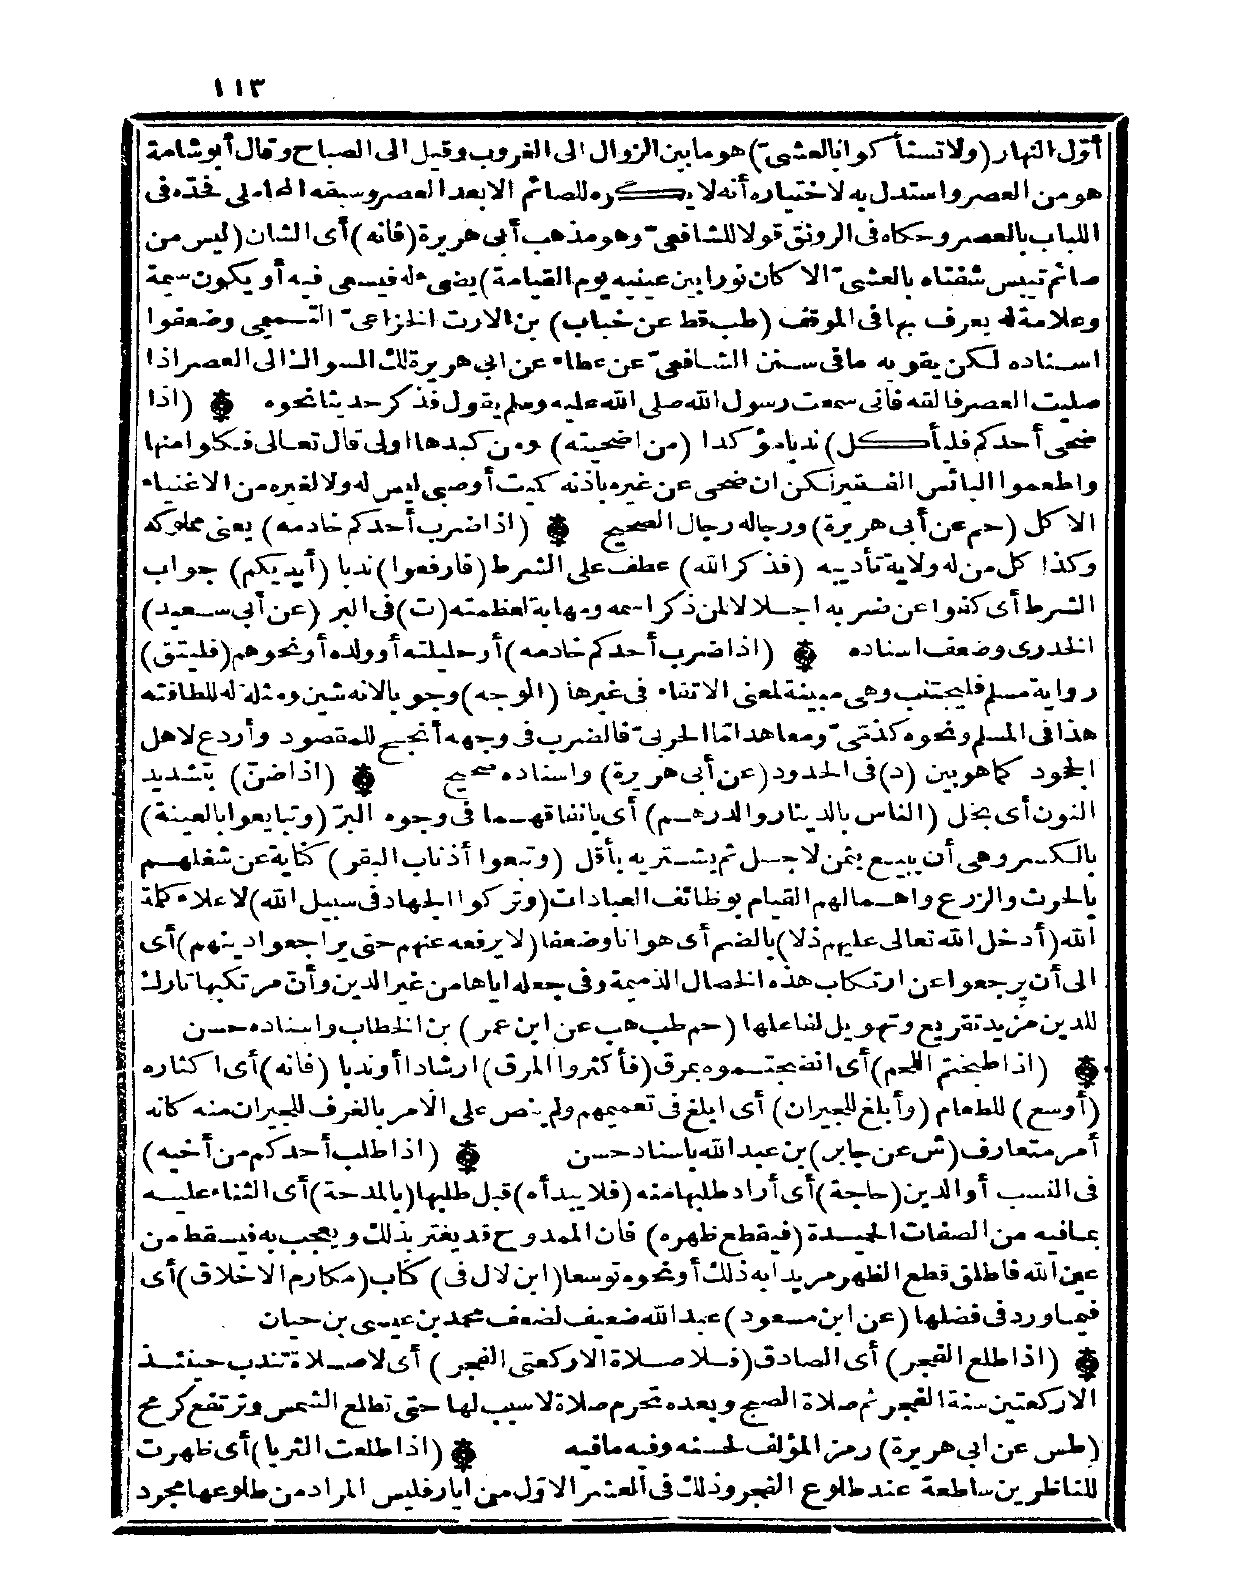 ١١٣
أوّل النهار (ولا تستأكوا بالعشىّ) هو ما بين الزوال الى الغروب وقيل الى الصباح وقال أبو شامة
هو من العصر واستدل به لاختياره أنه لا يكره للصائم الا بعد العصر وسبقه المحاملى فحدّه فى
اللباب بالعصر وحكاه فى الرونق قولا للشافعىّ وهو مذهب أبى هريرة (فانه) أى الشان (ليس من
صائم تيبس شفتاه بالعشىّ الا كان نورا بين عينيه يوم القيامة) يضىء له فيسعى فيه أو يكون سيمة
وعلامة له يعرف بها فى الموقف (طب قط عن خباب) بن الارت الخزاعىّ التميمى وضعفوا
اسناده لكن يقويه ما فى سنن الشافعىّ عن عطاء عن ابى هريرة لك السواك الى العصر اذا
صليت العصر فالقه فانى سمعت رسول الله صلى الله عليه وسلم يقول فذكر حديثا نحوه (اذا
ضحى أحدكم فليأكل) ندبا مؤكدا (من اضحيته) ومن كبدها اولى قال تعالى فكلوا منها
واطعموا البائس الفقير نكن ان ضحى عن غيره باذنه كميت أوصى ليس له ولا لغيره من الاغنياء
الاكل (حم عن أبى هريرة) ورجاله رجال الصحيح (اذا ضرب أحدكم خادمه) يعنى مملوكه
وكذا كل من له ولاية تأديبه (فذكر الله) عطف على الشرط (فارفعوا) ندبا (أيديكم) جواب
الشرط أى كفوا عن ضربه اجلالا لمن ذكر اسمه ومهابة لعظمته (ت) فى البر (عن أبى سعيد)
الخدرى وضعف اسناده (اذا ضرب أحدكم خادمه) أو حليلته أو ولده أو نحوهم (فليتق)
رواية مسلم فليجتنب وهى مبينة لمعنى الاتقاء فى غيرها (الوجه) وجوبا لانه شين ومثله له للطافته
هذا فى المسلم ونحوه كذمّىّ ومعاهد امّا الحربىّ فالضرب فى وجهه أنجح للمقصود وأردع لاهل
الجحود كما هو بين (د) فى الحدود (عن أبى هريرة) واسناده صحيح (اذا ضنّ) بتشديد
النون أى بخل (الناس بالدينار والدرهم) أى بانفاقهما فى وجوه البرّ (وتبايعوا بالعينة)
بالكسر وهى أن يبيع بثمن لاجل ثم يشتريه بأقل (وتبعوا أذناب البقر) كناية عن شغلهم
بالحرث والزرع واهمالهم القيام بوظائف العبادات (وتركوا الجهاد فى سبيل الله) لاعلاء كلمة
الله (أدخل الله تعالى عليهم ذلا) بالضم أى هوانا وضعفا (لا يرفعه عنهم حتى يراجعوا دينهم) أى
الى أن يرجعوا عن ارتكاب هذه الخصال الذميمة وفى جعله اياها من غير الدين وأنّ مرتكبها تارك
للدين مزيد تقريع وتهويل لفاعلها (حم طب هب عن ابن عمر) بن الخطاب واسناده حسن
(اذا طبختم اللحم) أى انضجتموه بمرق (فأكثروا المرق) ارشادا أو ندبا (فانه) أى اكثاره
(أوسع) للطعام (وأبلغ للجيران) أى ابلغ فى تعميمهم ولم ينص على الأمر بالغرف للجيران منه كانه
أمر متعارف (ش عن جابر) بن عبد الله باسناد حسن (اذا طلب أحدكم من أخيه)
فى النسب أو الدين (حاجة) أى أراد طلبها منه (فلا يبدأه) قبل طلبها (بالمدحة) أى الثناء عليه
بما فيه من الصفات الجيدة (فيقطع ظهره) فان الممدوح قد يغتر بذلك ويعجب به فيسقط من
عين الله فاطلق قطع الظهر مريدا به ذلك أو نحوه توسعا (ابن لال فى) كتاب (مكارم الاخلاق) أى
فيما ورد فى فضلها (عن ابن مسعود) عبد الله ضعيف لضعف محمد بن عيسى بن حيان
(اذا طلع الفجر) أى الصادق (فلا صلاة الا ركعتى الفجر) أى لا صلاة تندب حينئذ
الا ركعتين سنة الفجر ثم صلاة الصبح وبعده تحرم صلاة لا سبب لها حتى تطلع الشمس وترتفع كرمح
(طس عن ابى هريرة) رمز المؤلف لحسنه وفيه ما فيه (اذا طلعت الثريا) أى ظهرت
للناظرين ساطعة عند طلوع الفجر وذلك فى العشر الاوّل من ايار فليس المراد من طلوعها مجرد